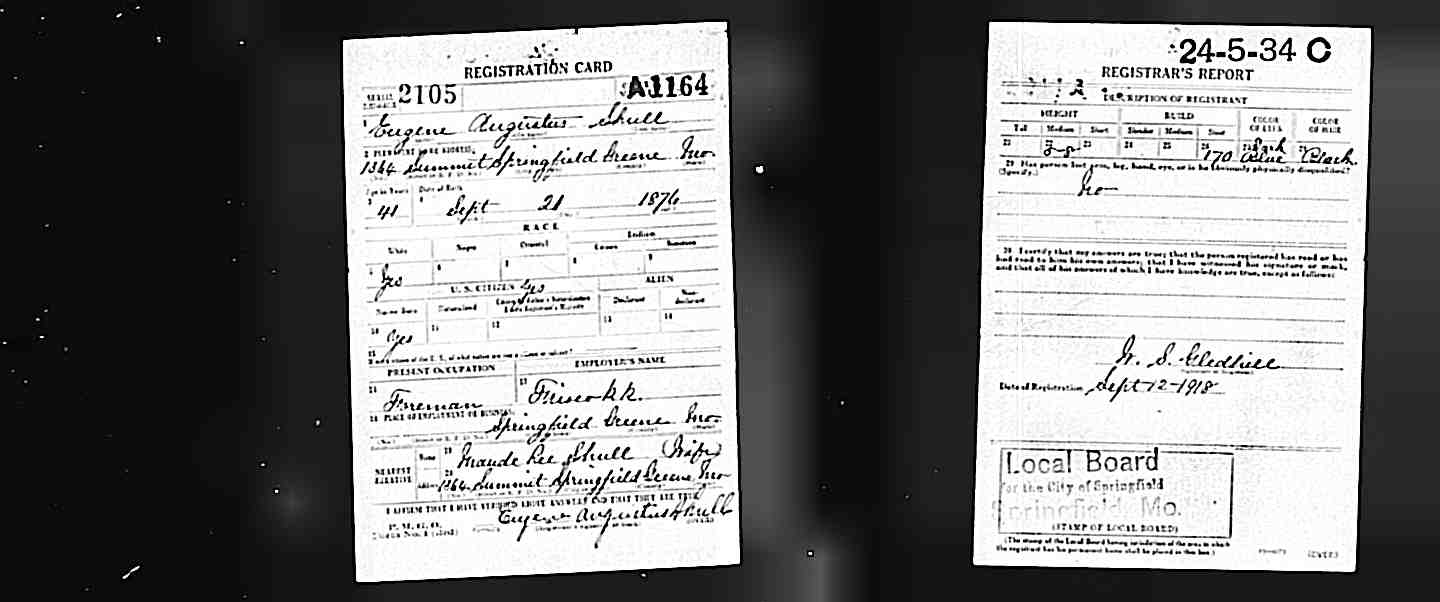 REGISTRATION CARD
SERIAL NUMBER 2105
A1164
1 Eugene Augustus Shull
2 PERMANENT HOME ADDRESS:
1364 Summit Springfield Greene Mo.
Age in Years Date of Birth
3 41 4 Sept 21 1876
RACE
White Negro Oriental Indian
Citizen Noncitizen
5 Yes 6 7 8 9
U. S. CITIZEN Yes ALIEN
Native Born Naturalized Declarant Non-declarant
10 Yes 11 12 13 14
15
PRESENT OCCUPATION EMPLOYER'S NAME
16 Foreman 17 Frisco R.R.
18 PLACE OF EMPLOYMENT OR BUSINESS:
Springfield Greene Mo.
NEAREST RELATIVE
Name 19 Maude Lee Shull (Wife)
Address 20 1364 Summit Springfield Greene Mo
I AFFIRM THAT I HAVE VERIFIED ABOVE ANSWERS AND THAT THEY ARE TRUE
P. M. G. O.
Form No. 1 (Red)
Eugene Augustus Shull
24-5-34 C
REGISTRAR'S REPORT
DESCRIPTION OF REGISTRANT
HEIGHT BUILD COLOR OF EYES COLOR OF HAIR
Tall Medium Short Slender Medium Stout
21 22 5-8 23 24 25 26 170 27 Dark Blue 28 Black.
29 Has person lost arm, leg, hand, eye, or is he obviously physically disqualified?
(Specify.)
No
30 I certify that my answers are true; that the person registered has read or has
had read to him his own answers; that I have witnessed his signature or mark,
and that all of his answers of which I have knowledge are true, except as follows:
W. S. Gledhill
Date of Registration Sept 12-1918
Local Board
for the City of Springfield
Springfield, Mo.
(STAMP OF LOCAL BOARD)
(The stamp of the Local Board having jurisdiction of the area in which
the registrant has his permanent home shall be placed in this box.)
(OVER)